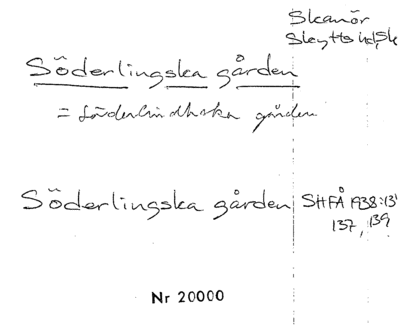 Skanör
Skytts hd, Sk
Söderlingska gården
= Söderlindhska gården
Söderlingska gården SHFÅ 1938: 131
137, 139
Nr 20000